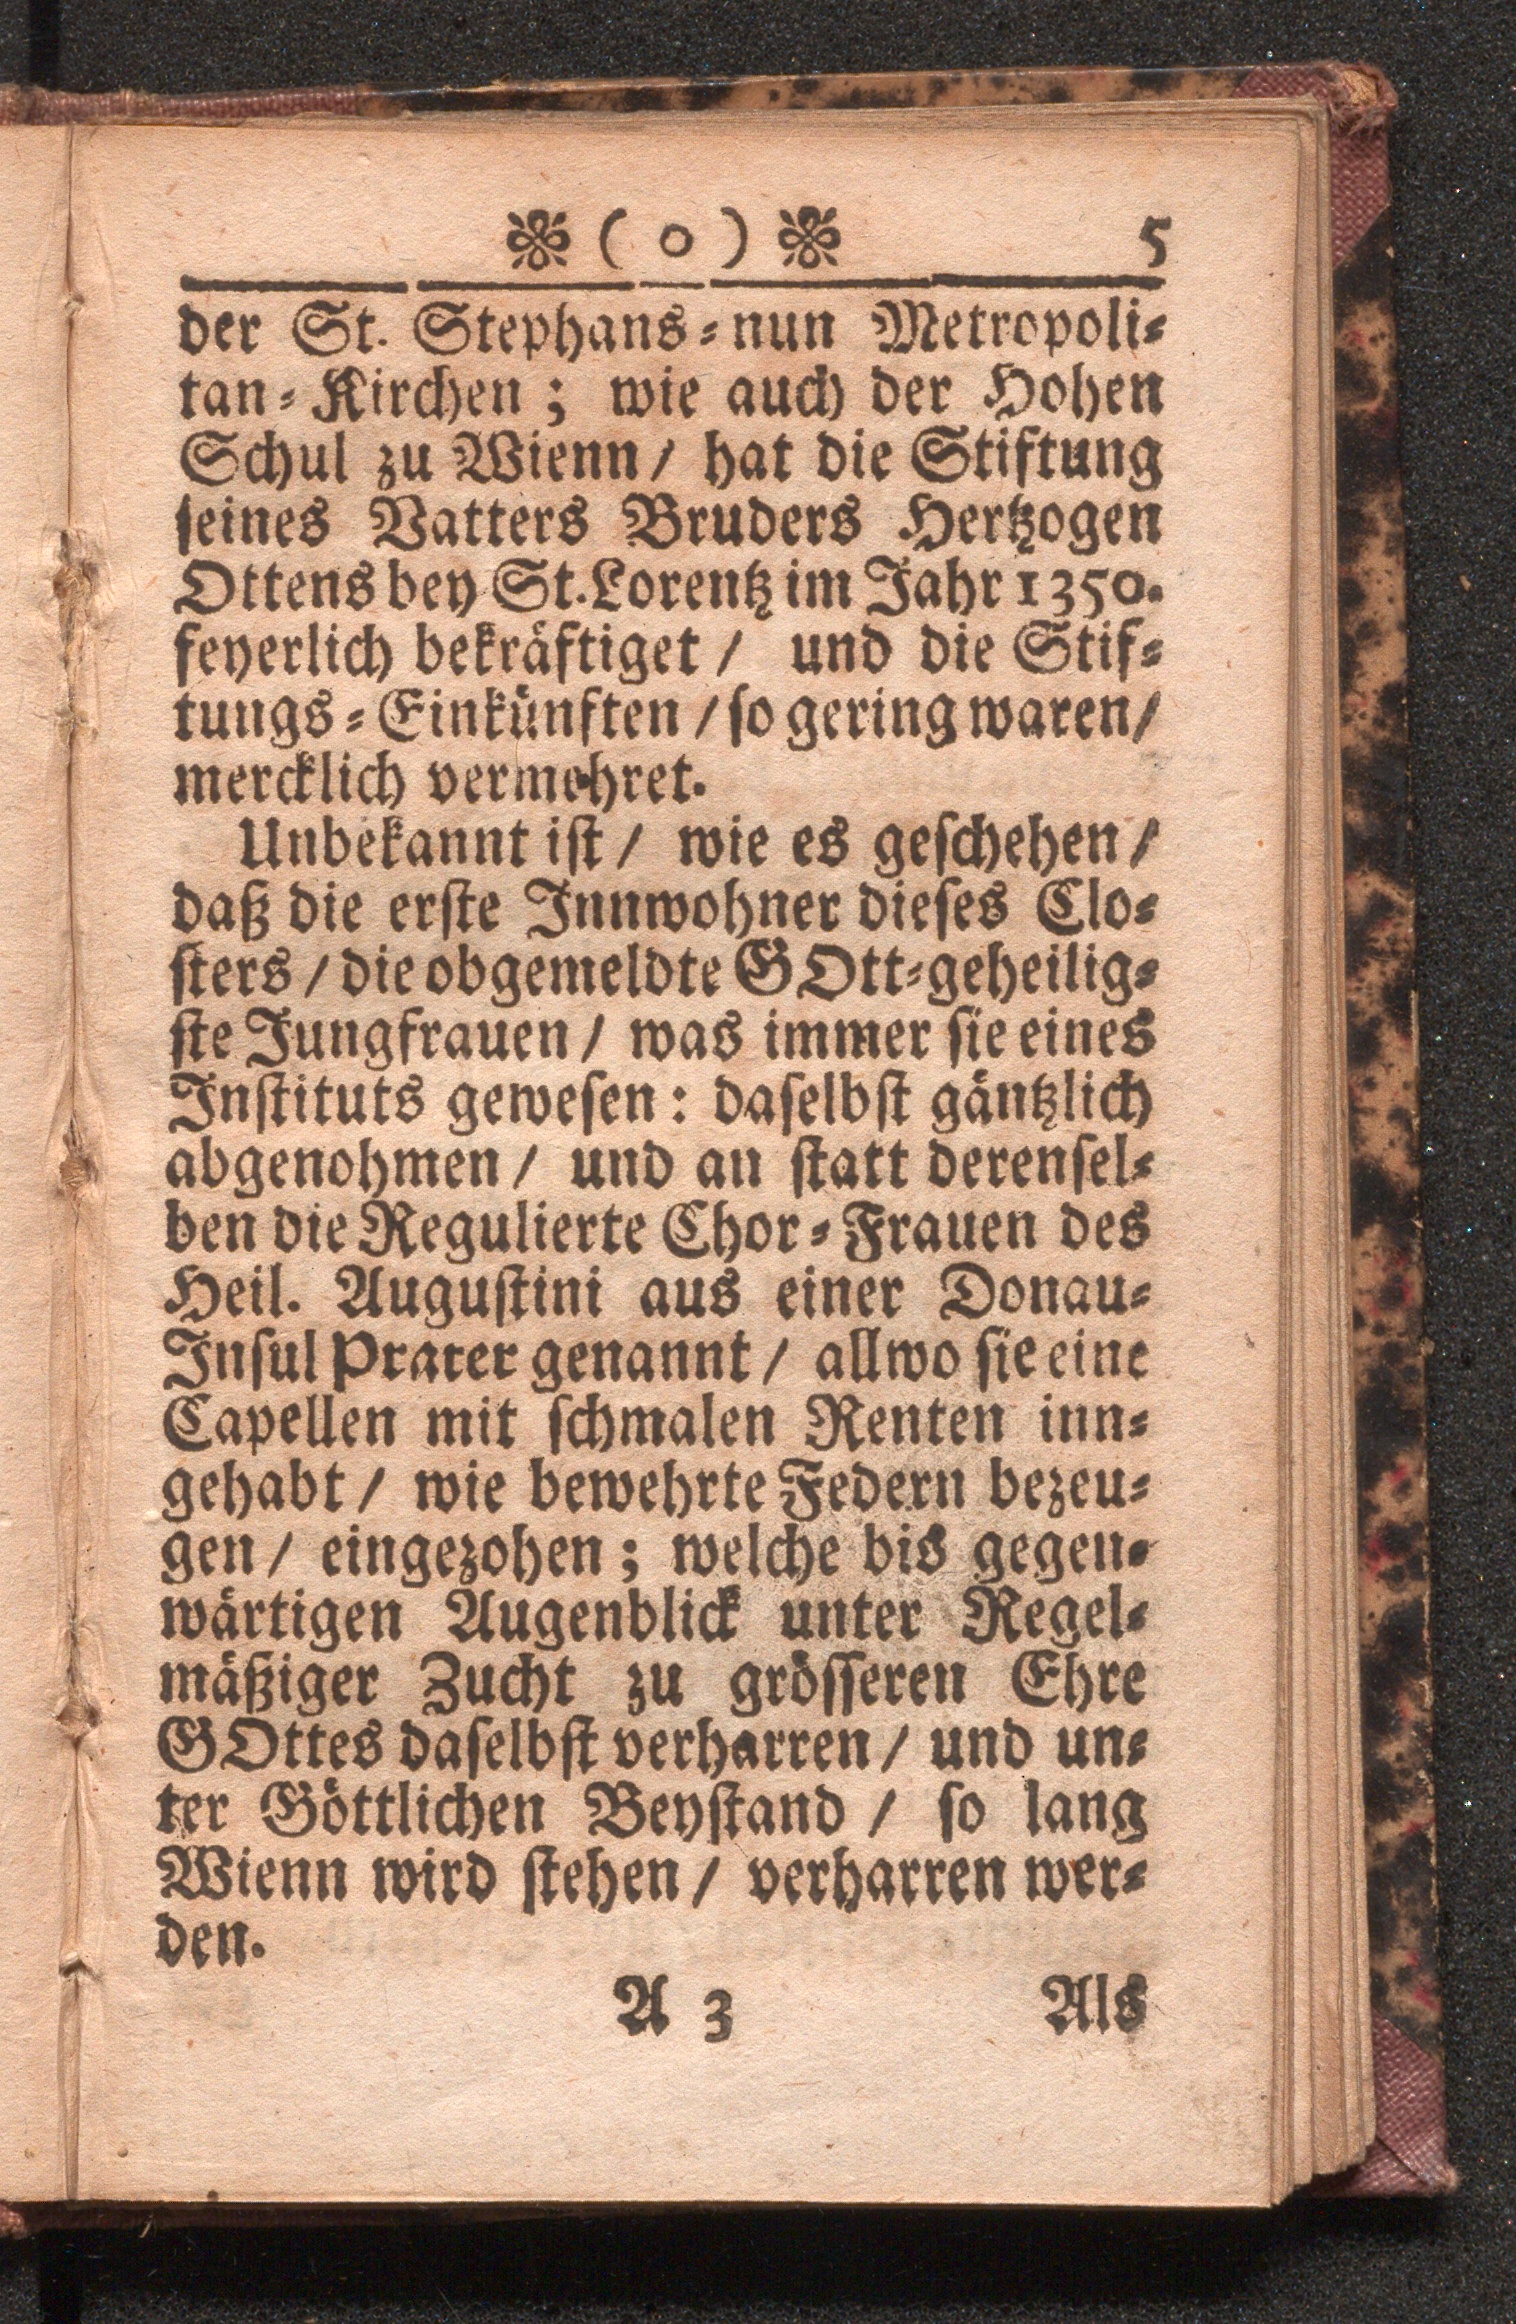 ❉ ( o ) ❉ 5
der St. Stephans-nun Metropoli-
tan-Kirchen; wie auch der Hohen
Schul zu Wienn/ hat die Stiftung
seines Vatters Bruders Hertzogen
Ottens bey St. Lorentz im Jahr 1350.
feyerlich bekräftiget/ und die Stif-
tungs-Einkünften/ so gering waren/
mercklich vermehret.
Unbekannt ist/ wie es geschehen/
daß die erste Innwohner dieses Clo-
sters/ die obgemeldte GOtt-geheilig-
ste Jungfrauen/ was immer sie eines
Instituts gewesen: daselbst gäntzlich
abgenohmen/ und an statt derensel-
ben die Regulierte Chor-Frauen des
Heil. Augustini aus einer Donau-
Insul Prater genannt/ allwo sie eine
Capellen mit schmalen Renten inn-
gehabt/ wie bewehrte Federn bezeu-
gen/ eingezohen; welche bis gegen-
wärtigen Augenblick unter Regel-
mäßiger Zucht zu grösseren Ehre
GOttes daselbst verharren/ und un-
ter Göttlichen Beystand/ so lang
Wienn wird stehen/ verharren wer-
den.
A 3 Als